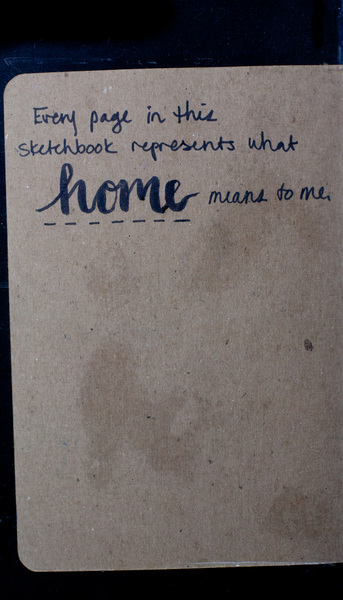 Every page in this
sketchbook represents what
home means to me.